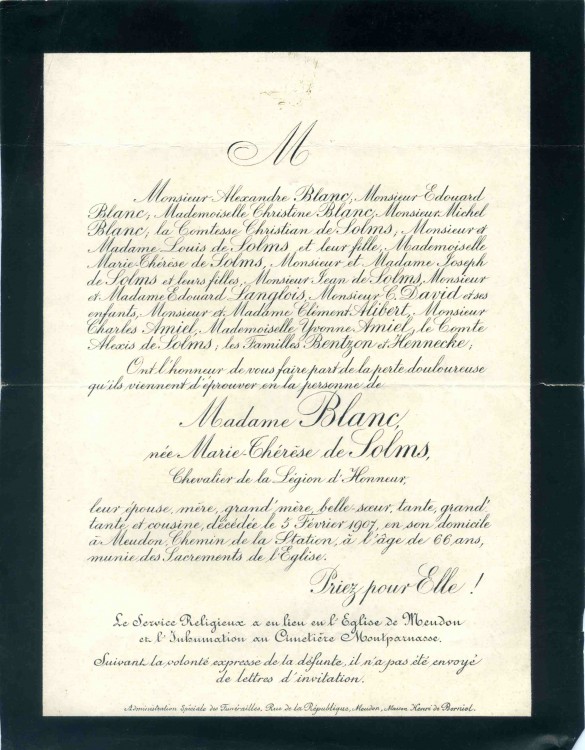 M
Monsieur Alexandre Blanc, Monsieur Edouard
Blanc, Mademoiselle Christine Blanc, Monsieur Michel
Blanc, la Comtesse Christian de Solms, Monsieur et
Madame Louis de Solms, et leur fille, Mademoiselle
Marie-Thérèse de Solms, Monsieur et Madame Joseph
de Solms et leurs filles, Monsieur Jean de Solms, Monsieur
et Madame Edouard Langlois, Monsieur C. David et ses
enfants, Monsieur et Madame Clément Alibert, Monsieur
Charles Amiel, Mademoiselle Yvonne Amiel, le Comte
Alexis de Solms; les Familles Bentzon et Hennecke;
Ont l'honneur de vous faire part de la perte douloureuse
qu'ils viennent d'éprouver en la personne de
Madame Blanc,
née Marie-Thérèse de Solms,
Chevalier de la Légion d'Honneur,
leur épouse, mère, grand'mère, belle-sœur, tante, grand'
tante, et cousine, décédée le 5 Février 1907, en son domicile
à Meudon, Chemin de la Station, à l'âge de 66 ans,
munie des Sacrements de l'Eglise.
Priez pour Elle !
Le Service Religieux a eu lieu en l'Eglise de Meudon
et l'Inhumation au Cimetière Montparnasse.
Suivant la volonté expresse de la défunte, il n'a pas été envoyé
de lettres d'invitation.
Administration Spéciale des Funérailles, Rue de la République, Meudon, Maison Henri de Berniol.